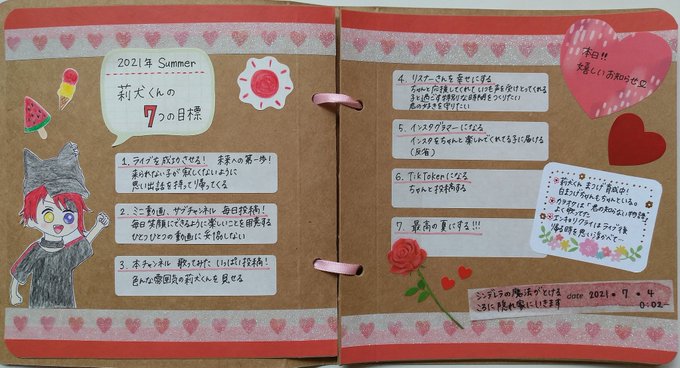 2021年 Summer
莉犬くんの
7つの目標
1. ライブを成功させる! 未来への第一歩!
来られない子が寂しくないように
思い出話を持って帰ってくる
2. ミニ動画、サブチャンネル 毎日投稿!
毎日笑顔にできるように楽しいことを用意する
ひとつひとつの動画に妥協しない
3. 本チャンネル 歌ってみた いっぱい投稿!
色んな雰囲気の莉犬くんを見せる
4. リスナーさんを幸せにする
ちゃんと応援してくれて いつも声を受けとってくれる
子と過ごす特別な時間をつくりたい
君の大好きを守りたい
5. インスタグラマーになる
インスタをちゃんと楽しみにしてくれてる子に届ける
(反省)
6. TikTokerになる
ちゃんと投稿する
7. 最高の夏にする!!!
本日!!
嬉しいお知らせ
莉犬くん まつげ育成中!
白まつげちゃんもちゃんといる。
カラオケは「君の知らない物語」
よく歌ってた
エンキョリクライはライブ後
帰る時を思い浮かべて…
シンデレラの魔法がとける
ころに隠れ家にいきます
date 2021. 7. 4
0:02~